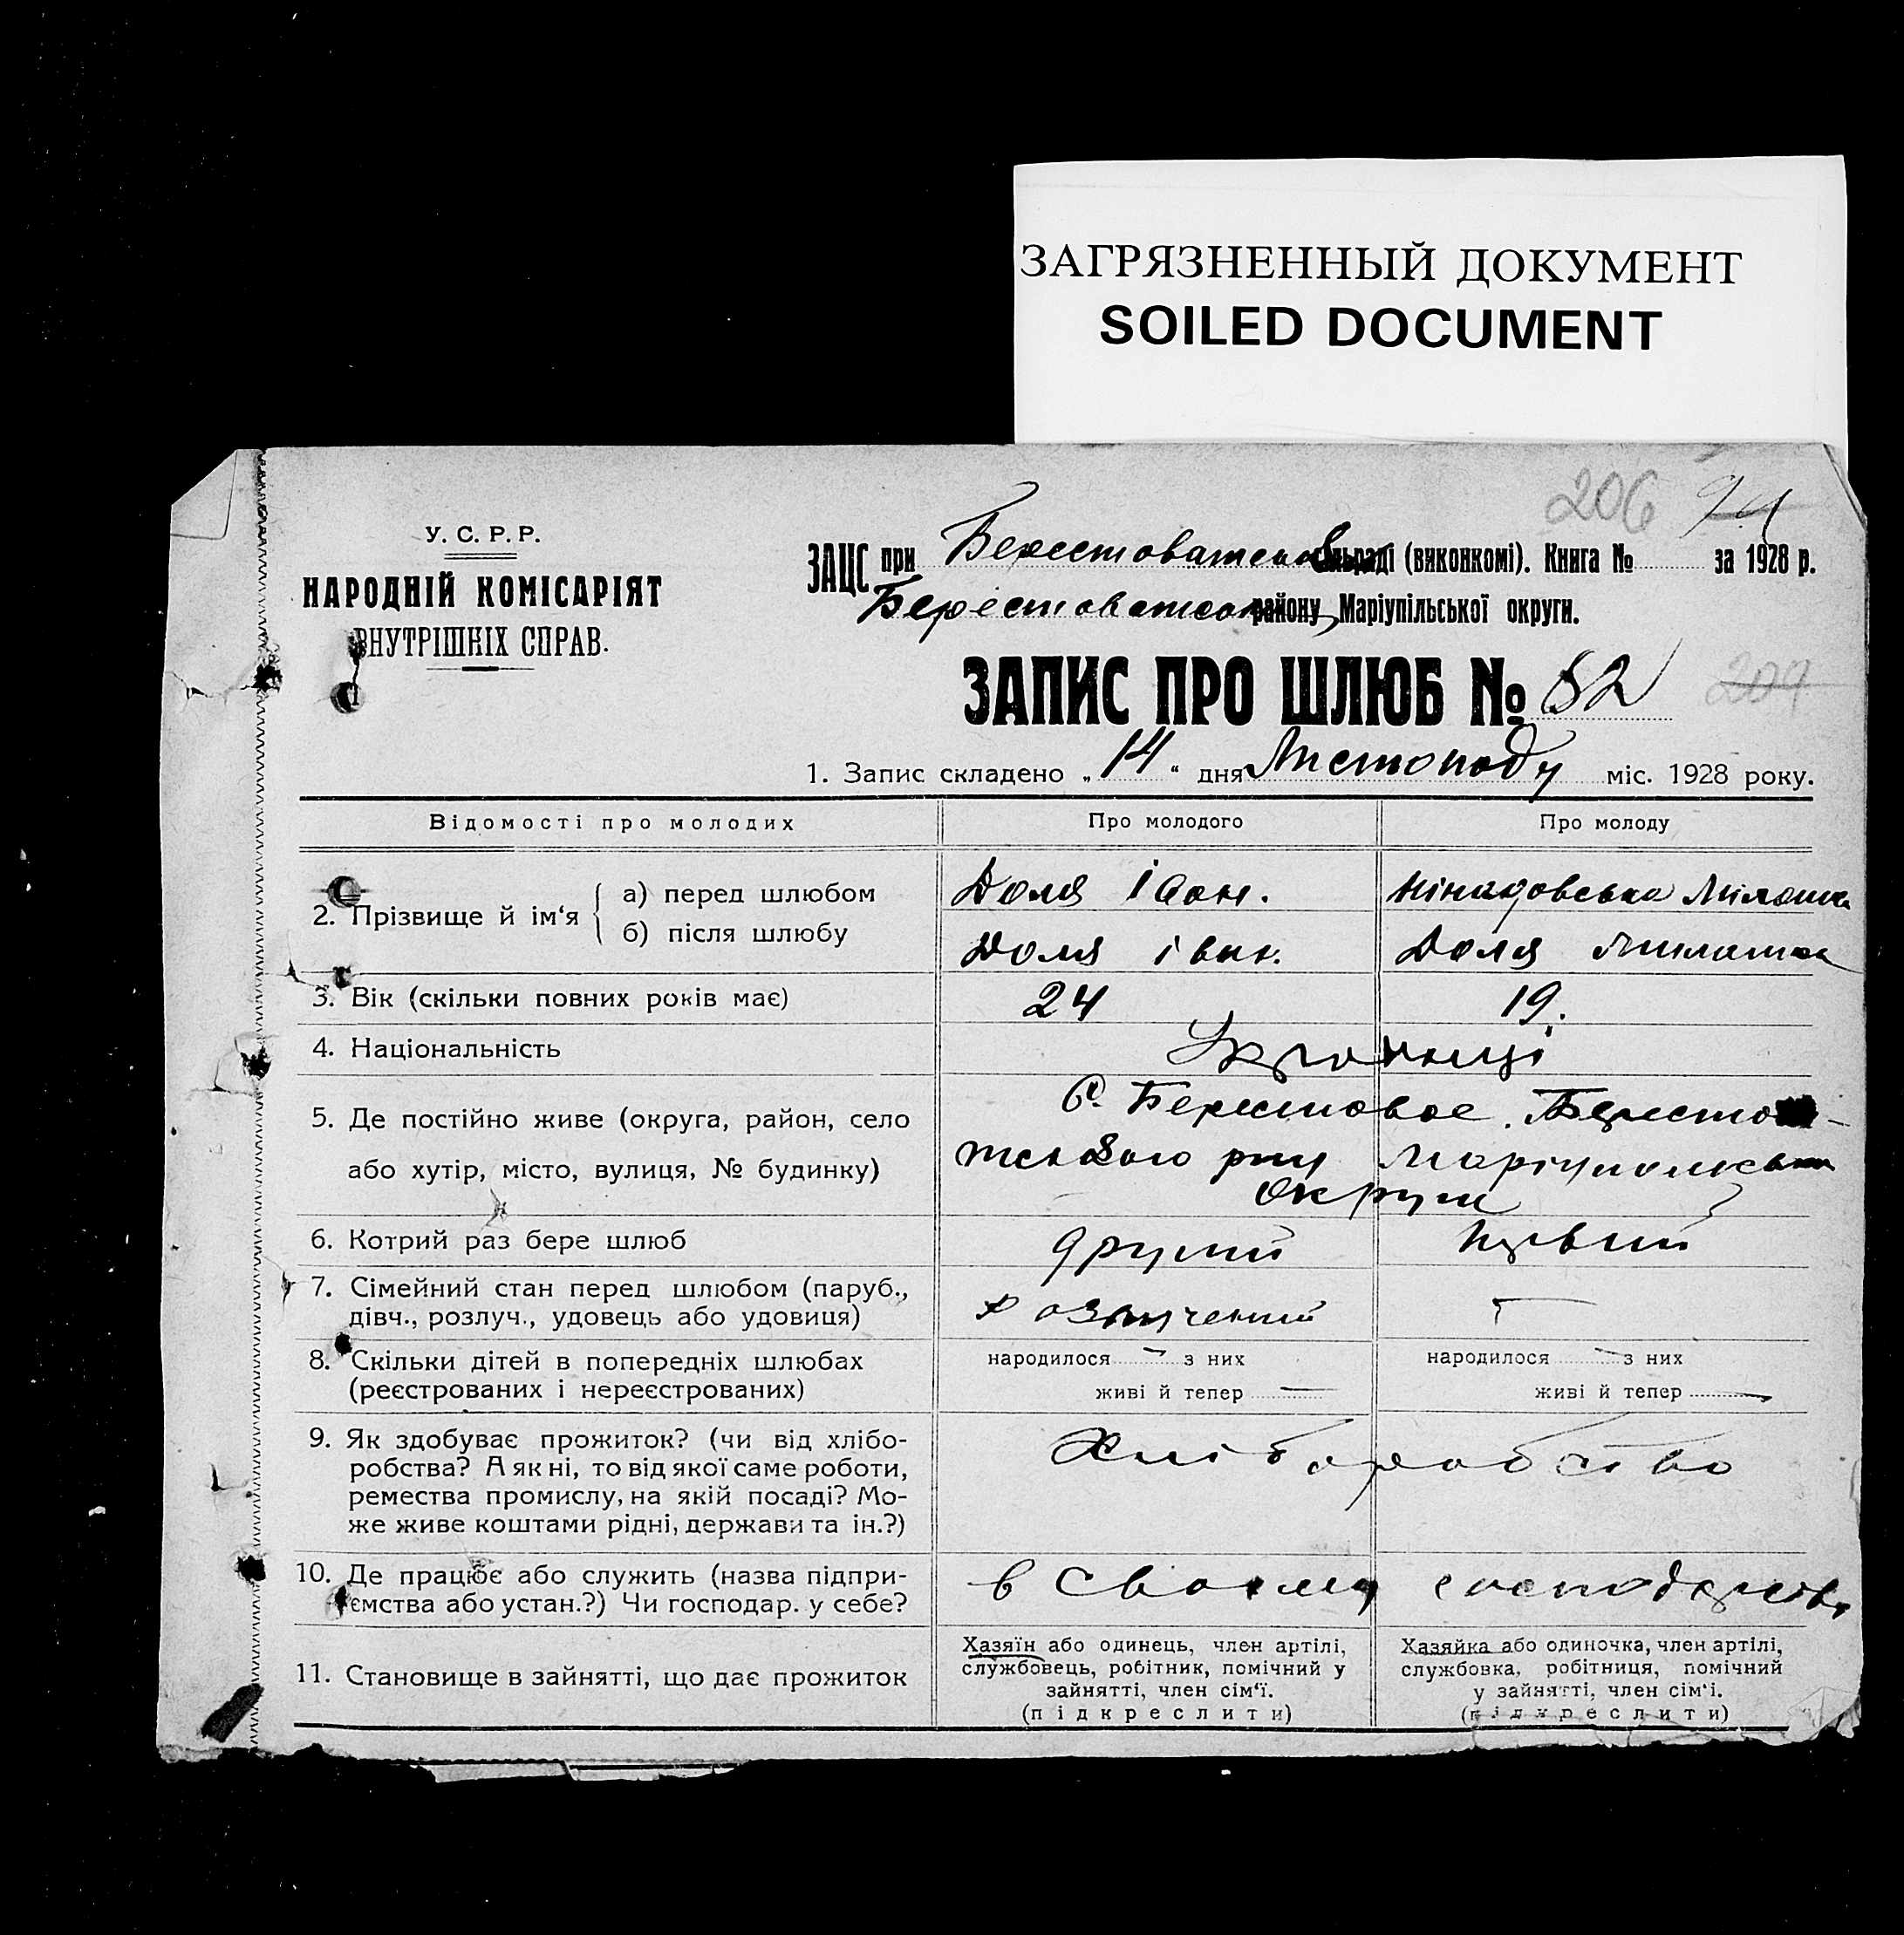 ЗАГРЯЗНЕННЫЙ ДОКУМЕНТ
SOILED DOCUMENT
206
У. С. Р. Р.
НАРОДНІЙ КОМІСАРІЯТ
ВНУТРІШНІХ СПРАВ.
ЗАЦС при Берестоватській сільраді (виконкомі). Книга № за 1928 р.
Берестоватського району Маріупільської округи.
ЗАПИС ПРО ШЛЮБ № 82
209
1. Запис складено „14“ дня Листопаду міс. 1928 року.
Відомості про молодих Про молодого Про молоду
2. Прізвище й ім‘я
а) перед шлюбом Доля Іван.
б) після шлюбу Доля Іван. Доля
3. Вік (скільки повних років має) 24 19.
4. Національність Українці
5. Де постійно живе (округа, район, село С. Берестовое. Берестова-
або хутір, місто, вулиця, № будинку) тського р-ну Маріупольськ
округи
6. Котрий раз бере шлюб другий первий
7. Сімейний стан перед шлюбом (паруб., розлучений —
дівч., розлуч., удовець або удовиця)
8. Скільки дітей в попередніх шлюбах народилося — з них народилося — з них
(реєстрованих і нереєстрованих) живі й тепер — живі й тепер —
9. Як здобуває прожиток? (чи від хлібо- Хліборобство
робства? А як ні, то від якої саме роботи,
ремества промислу, на якій посаді? Мо-
же живе коштами рідні, держави та ін.?)
10. Де працює або служить (назва підпри- в своєму господарстві
ємства або устан.?) Чи господар. у себе?
11. Становище в зайнятті, що дає прожиток
Хазяїн або одинець, член артілі,
службовець, робітник, помічний у
зайнятті, член сім‘ї.
(підкреслити)
Хазяйка або одиночка, член артілі,
службовка, робітниця, помічний
у зайнятті, член сім‘ї.
(підкреслити)